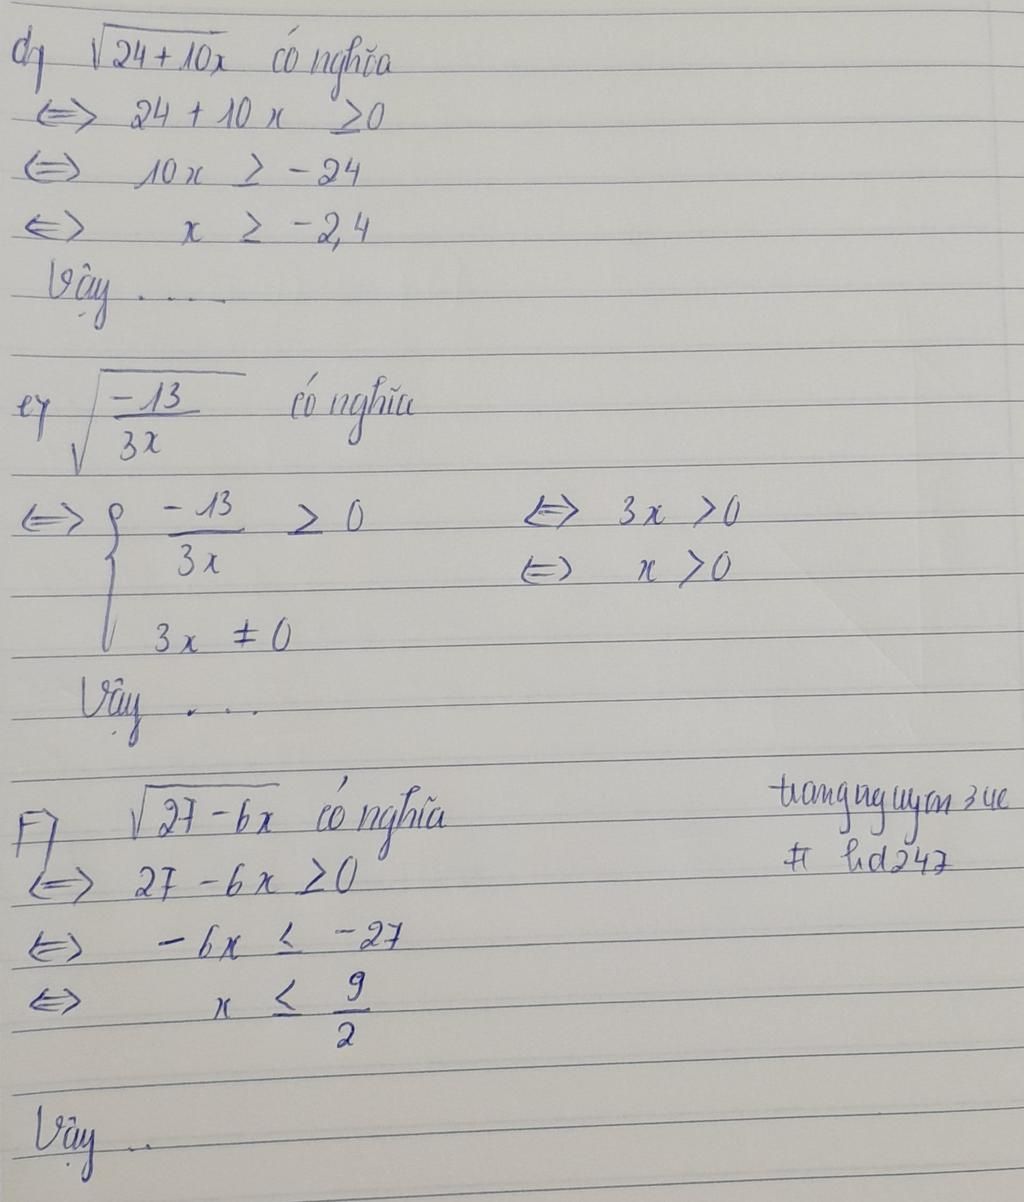 d) √24+10x có nghĩa
⇔ 24 + 10x ≥ 0
⇔ 10x ≥ -24
⇔ x ≥ -2,4
Vậy .....
e) √(-13/3x) có nghĩa
⇔ { -13/3x ≥ 0 ⇔ 3x > 0
3x ≠ 0 ⇔ x > 0
Vậy ....
F) √27-6x có nghĩa
⇔ 27 - 6x ≥ 0
⇔ -6x ≤ -27
⇔ x ≤ 9/2
Vậy ..
trangnguyen3uc
# hd247